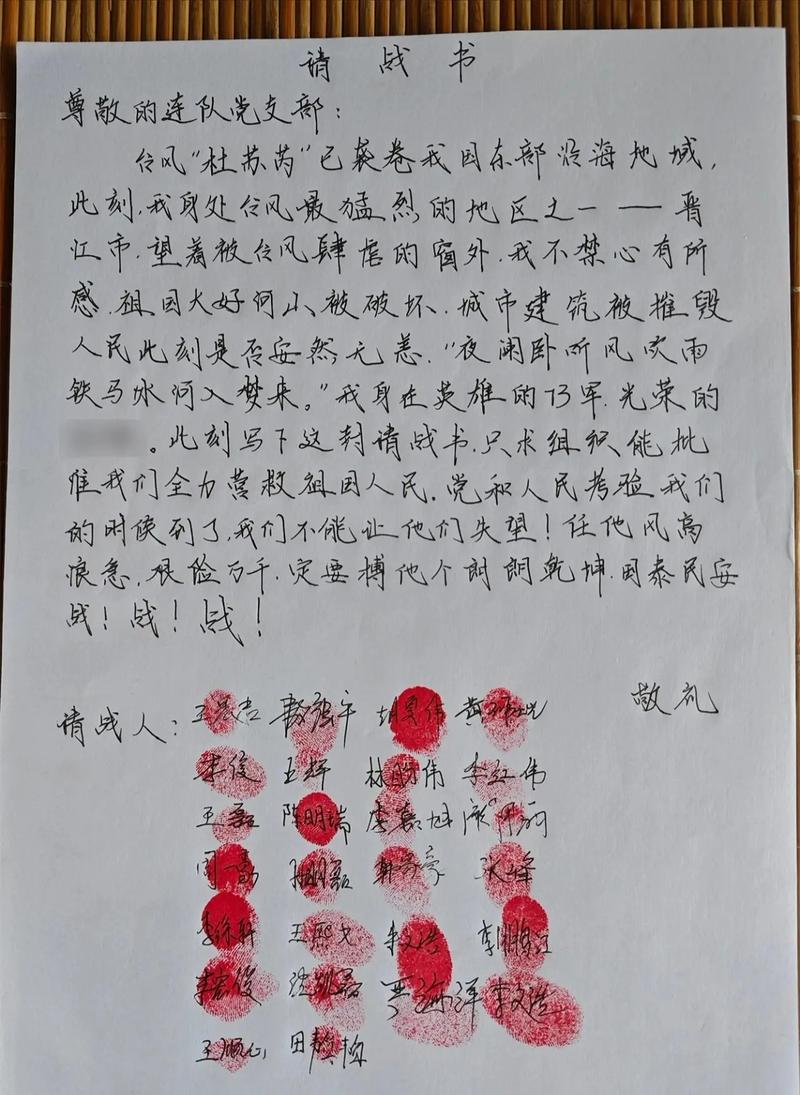 请战书
尊敬的连队党支部：
台风“杜苏芮”已袭卷我国东部沿海地域，
此刻，我身处台风最猛烈的地区之一——晋
江市，望着被台风肆虐的窗外，我不禁心有所
感，祖国大好河山被破坏，城市建筑被摧毁
人民此刻是否安然无恙，“夜阑卧听风吹雨
铁马冰河入梦来。”我身在英雄的73军，光荣的
。此刻写下这封请战书，只求组织能批
准我们全力营救祖国人民，党和人民考验我们
的时候到了，我们不能让他们失望！任他风高
浪急，艰险万千，定要搏他个朗朗乾坤，国泰民安
战！战！战！
敬礼
请战人：王 胡昊伟
李俊 王辉 林 伟 李红伟
王磊 陈明瑞 李嘉旭
周 张峰
李 王熙 李文浩 李
李 俊 严海洋 李文浩
王顺心 田